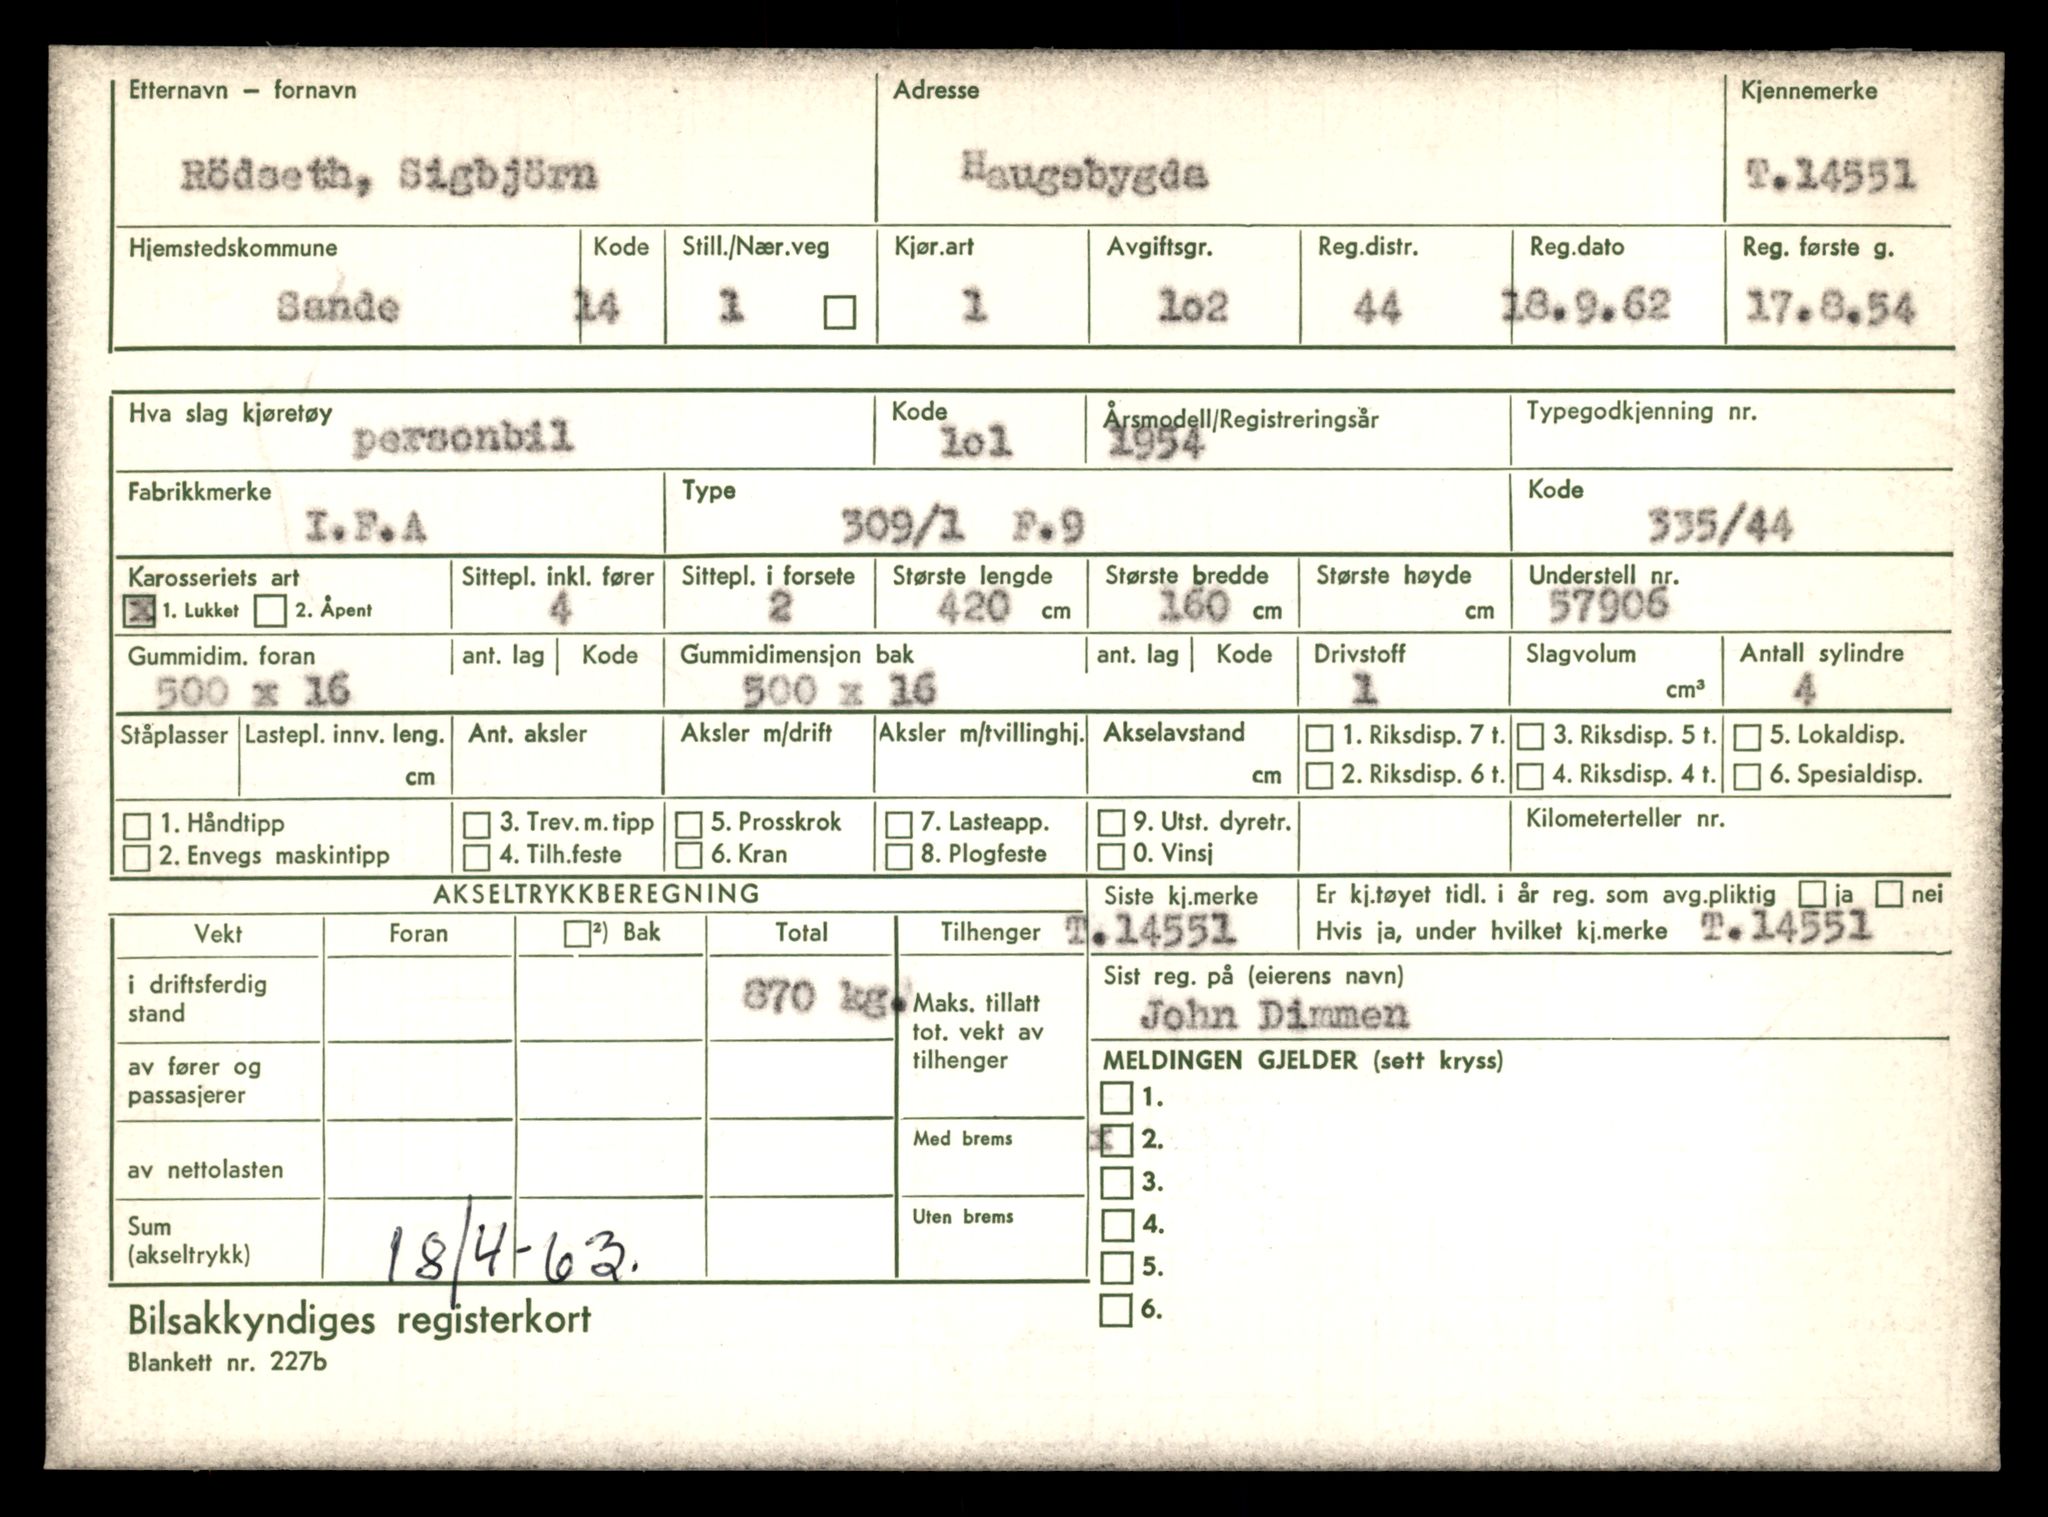 Etternavn – fornavn Adresse Kjennemerke
Rödseth, Sigbjörn Haugsbygda T.14551
Hjemstedskommune Kode Still./Nær.veg Kjør.art Avgiftsgr. Reg.distr. Reg.dato Reg. første g.
Sande 14 1 1 lo2 44 18.9.62 17.8.54
Hva slag kjøretøy Kode Årsmodell/Registreringsår Typegodkjenning nr.
personbil lol 1954
Fabrikkmerke Type Kode
I.F.A 309/1 F.9 335/44
Karosseriets art Sittepl. inkl. fører Sittepl. i forsete Største lengde Største bredde Største høyde Understell nr.
x 1. Lukket 2. Åpent 4 2 420 cm 160 cm cm 57906
Gummidim. foran ant. lag Kode Gummidimensjon bak ant. lag Kode Drivstoff Slagvolum Antall sylindre
500 x 16 500 x 16 1 cm³ 4
Ståplasser Lastepl. innv. leng. Ant. aksler Aksler m/drift Aksler m/tvillinghj. Akselavstand 1. Riksdisp. 7 t. 3. Riksdisp. 5 t. 5. Lokaldisp.
cm cm 2. Riksdisp. 6 t. 4. Riksdisp. 4 t. 6. Spesialdisp.
1. Håndtipp 3. Trev. m. tipp 5. Prosskrok 7. Lasteapp. 9. Utst. dyretr. Kilometerteller nr.
2. Envegs maskintipp 4. Tilh.feste 6. Kran 8. Plogfeste 0. Vinsj
AKSELTRYKKBEREGNING Siste kj.merke Er kj.tøyet tidl. i år reg. som avg.pliktig ja nei
Vekt Foran ²) Bak Total Tilhenger T.14551 Hvis ja, under hvilket kj.merke T.14551
i driftsferdig stand 870 kg. Maks. tillatt tot. vekt av tilhenger
Sist reg. på (eierens navn)
John Dimmen
av fører og passasjerer
MELDINGEN GJELDER (sett kryss)
1.
Med brems x 2.
av nettolasten 3.
Uten brems 4.
Sum (akseltrykk) 18/4-63. 5.
6.
Bilsakkyndiges registerkort
Blankett nr. 227b